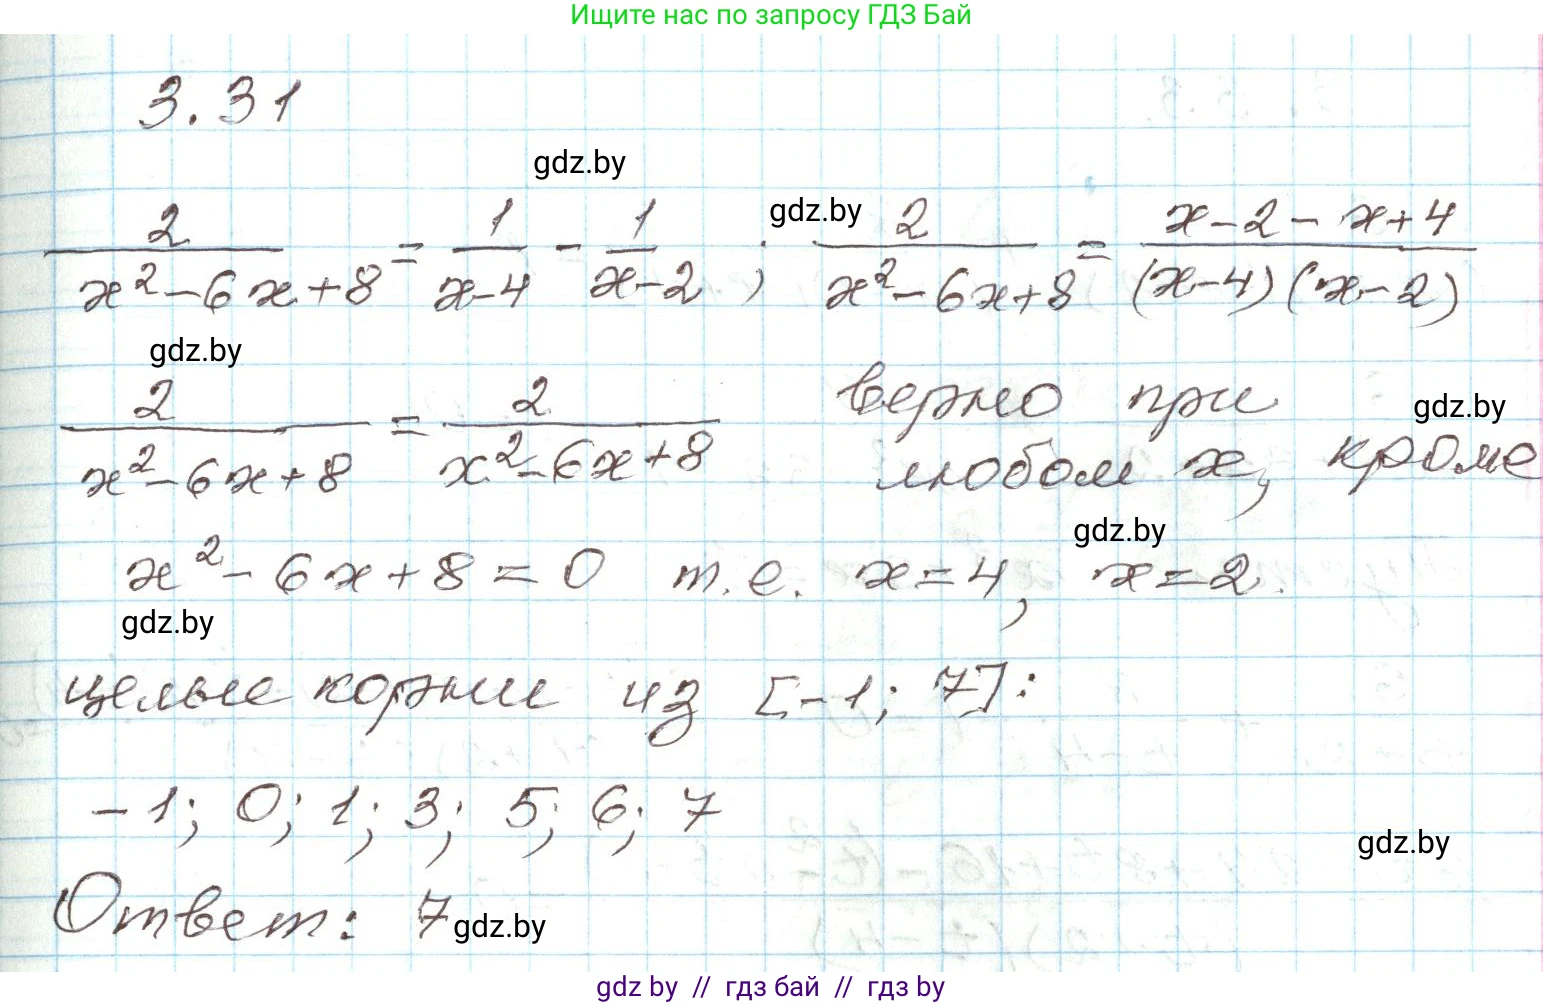 Ищите нас по запросу ГДЗ Бай
3.31
gdz.by
2/(x²-6x+8) = 1/(x-4) - 1/(x-2) ; 2/(x²-6x+8) = (x-2-x+4)/((x-4)(x-2))
gdz.by
gdz.by
2/(x²-6x+8) = 2/(x²-6x+8) верно при
gdz.by
любом x, кроме
gdz.by
x²-6x+8=0 т.е. x=4, x=2.
gdz.by
целые корни из [-1; 7]:
-1; 0; 1; 3; 5; 6; 7
gdz.by
Ответ: 7
gdz.by
gdz by // гдз бай // gdz by